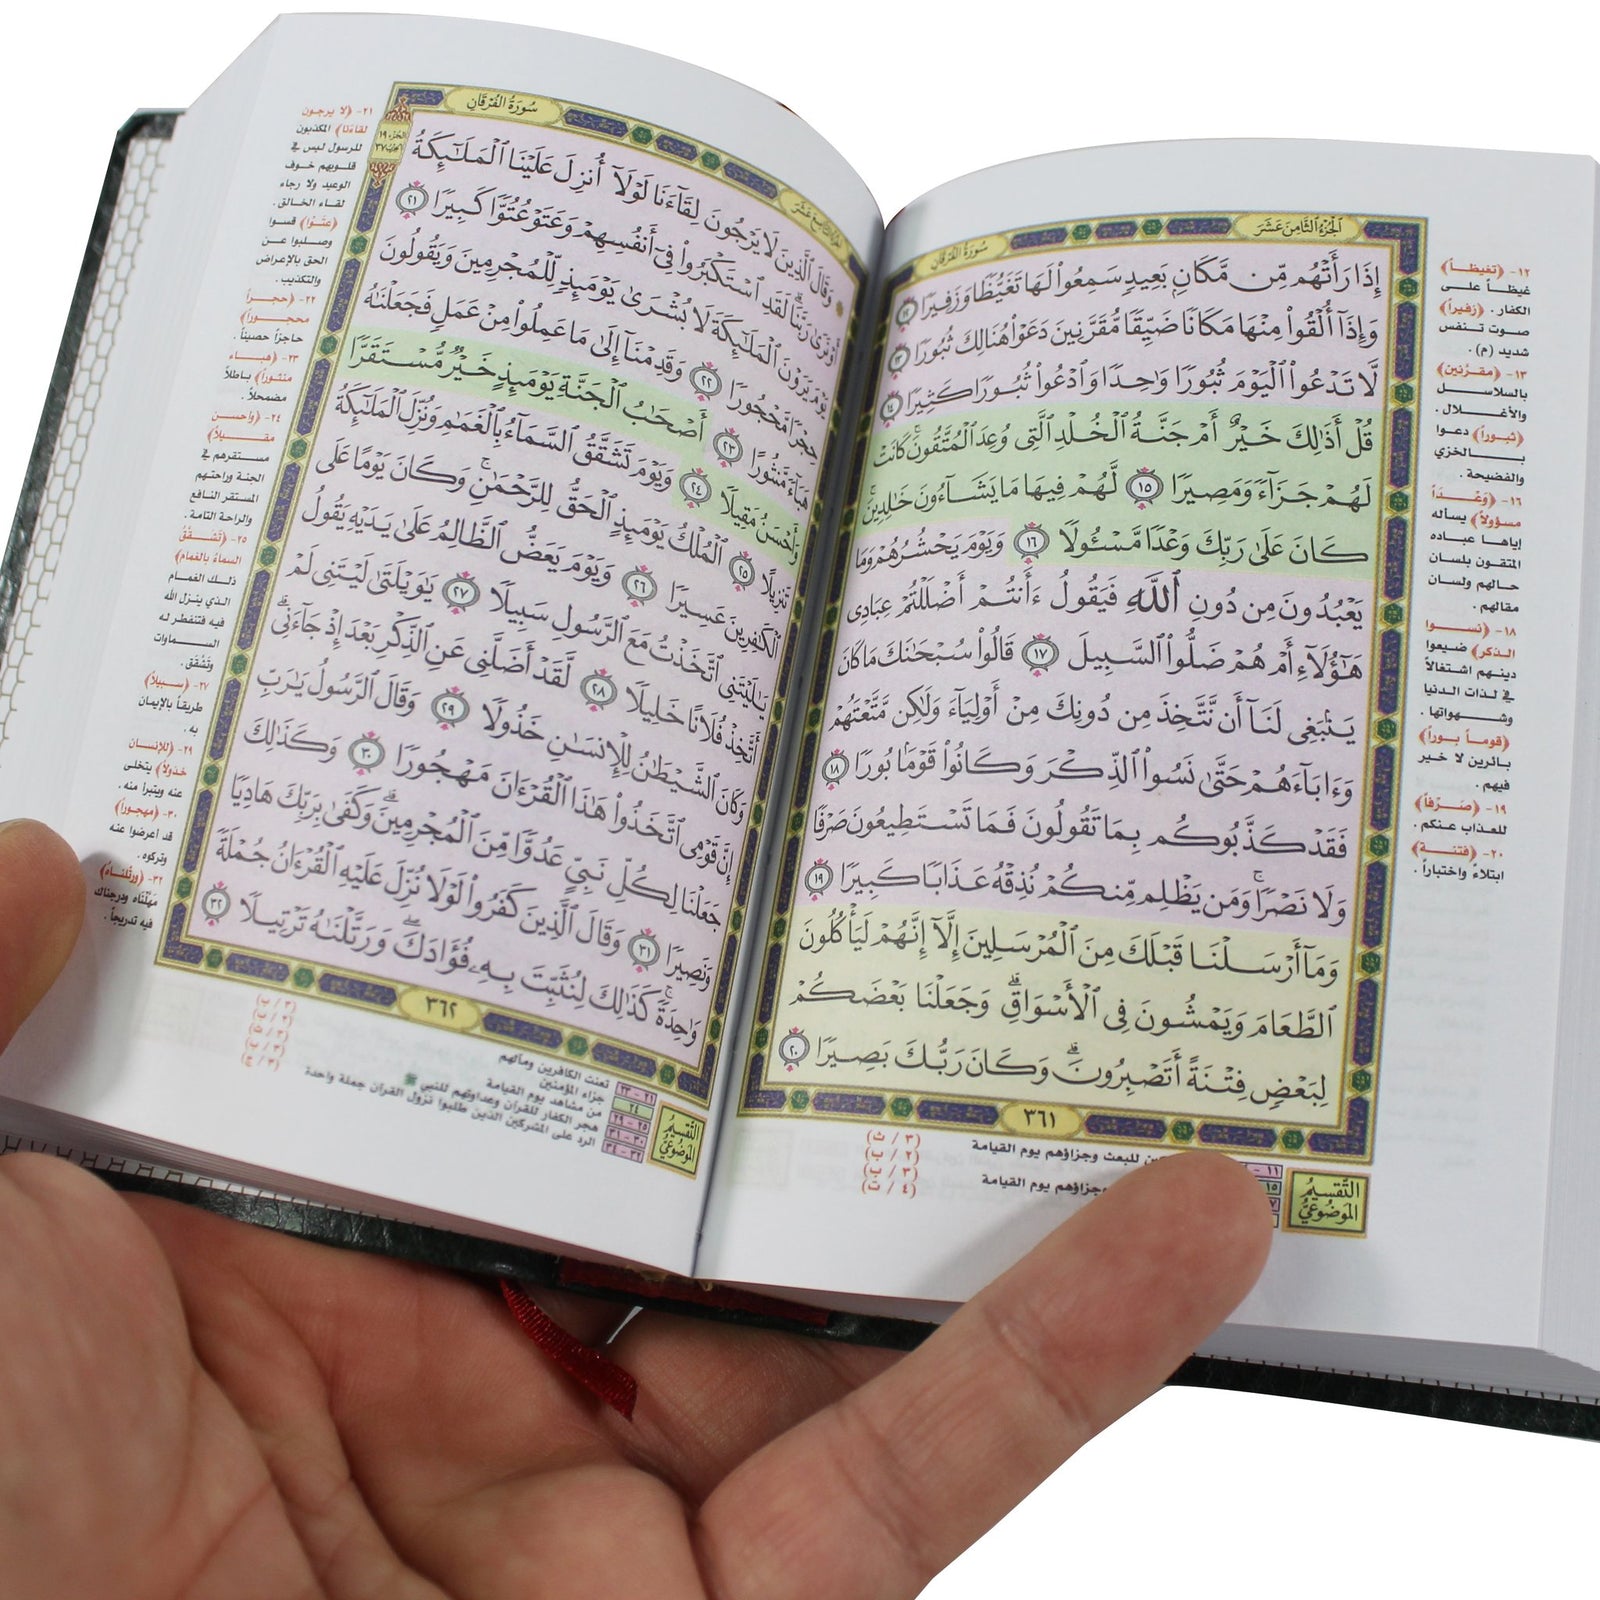 سُورَةُ الفُرْقَانِ
الجُزْءُ الثَّامِنَ عَشَرَ
إِذَا رَأَتْهُم مِّن مَّكَانٍ بَعِيدٍ سَمِعُوا۟ لَهَا تَغَيُّظًا وَزَفِيرًا ١٢
وَإِذَآ أُلْقُوا۟ مِنْهَا مَكَانًا ضَيِّقًا مُّقَرَّنِينَ دَعَوْا۟ هُنَالِكَ ثُبُورًا ١٣
لَّا تَدْعُوا۟ ٱلْيَوْمَ ثُبُورًا وَٰحِدًا وَٱدْعُوا۟ ثُبُورًا كَثِيرًا ١٤
قُلْ أَذَٰلِكَ خَيْرٌ أَمْ جَنَّةُ ٱلْخُلْدِ ٱلَّتِى وُعِدَ ٱلْمُتَّقُونَ ۚ كَانَتْ
لَهُمْ جَزَآءً وَمَصِيرًا ١٥ لَّهُمْ فِيهَا مَا يَشَآءُونَ خَٰلِدِينَ ۚ
كَانَ عَلَىٰ رَبِّكَ وَعْدًا مَّسْـُٔولًا ١٦ وَيَوْمَ يَحْشُرُهُمْ وَمَا
يَعْبُدُونَ مِن دُونِ ٱللَّهِ فَيَقُولُ ءَأَنتُمْ أَضْلَلْتُمْ عِبَادِى
هَٰٓؤُلَآءِ أَمْ هُمْ ضَلُّوا۟ ٱلسَّبِيلَ ١٧ قَالُوا۟ سُبْحَٰنَكَ مَا كَانَ
يَنۢبَغِى لَنَآ أَن نَّتَّخِذَ مِن دُونِكَ مِنْ أَوْلِيَآءَ وَلَٰكِن مَّتَّعْتَهُمْ
وَءَابَآءَهُمْ حَتَّىٰ نَسُوا۟ ٱلذِّكْرَ وَكَانُوا۟ قَوْمًۢا بُورًا ١٨
فَقَدْ كَذَّبُوكُم بِمَا تَقُولُونَ فَمَا تَسْتَطِيعُونَ صَرْفًا
وَلَا نَصْرًا ۚ وَمَن يَظْلِم مِّنكُمْ نُذِقْهُ عَذَابًا كَبِيرًا ١٩
وَمَآ أَرْسَلْنَا قَبْلَكَ مِنَ ٱلْمُرْسَلِينَ إِلَّآ إِنَّهُمْ لَيَأْكُلُونَ
ٱلطَّعَامَ وَيَمْشُونَ فِى ٱلْأَسْوَاقِ ۗ وَجَعَلْنَا بَعْضَكُمْ
لِبَعْضٍ فِتْنَةً أَتَصْبِرُونَ ۗ وَكَانَ رَبُّكَ بَصِيرًا ٢٠
٣٦١
١٢- ﴿تغيظاً﴾
غيظاً على
الكفار . ﴿زفيراً﴾
صوت تنفس
شديد (م).
١٣- ﴿مقرنين﴾
بالسلاسل
والأغلال .
﴿ثبوراً﴾ دعوا
بالخزي
والفضيحة .
١٦- ﴿وَعْدَاً
مسؤولاً﴾ يسأله
إياها عباده
المتقون بلسان
حالهم ولسان
مقالهم .
١٨- ﴿نسوا
الذكر﴾ ضيعوا
دينهم اشتغالاً
في لذات الدنيا
وشهواتها .
﴿قوماً بوراً﴾
بائرين لا خير
فيهم .
١٩- ﴿صَرْفاً﴾
للعذاب عنكم .
٢٠- ﴿فتنة﴾
ابتلاءً واختباراً .
التقسيم
الموضوعي
للبعث وجزاؤهم يوم القيامة
وجزاؤهم يوم القيامة
(٣ / ث)
(٢ / ب)
(٣ / ب)
(٤ / ت)
سُورَةُ الفُرْقَانِ
الجُزْء ١٩
الحِزْب ٣٧
وَقَالَ ٱلَّذِينَ لَا يَرْجُونَ لِقَآءَنَا لَوْلَآ أُنزِلَ عَلَيْنَا ٱلْمَلَٰٓئِكَةُ
أَوْ نَرَىٰ رَبَّنَا ۗ لَقَدِ ٱسْتَكْبَرُوا۟ فِىٓ أَنفُسِهِمْ وَعَتَوْ عُتُوًّا كَبِيرًا ٢١
يَوْمَ يَرَوْنَ ٱلْمَلَٰٓئِكَةَ لَا بُشْرَىٰ يَوْمَئِذٍ لِّلْمُجْرِمِينَ وَيَقُولُونَ
حِجْرًا مَّحْجُورًا ٢٢ وَقَدِمْنَآ إِلَىٰ مَا عَمِلُوا۟ مِنْ عَمَلٍ فَجَعَلْنَٰهُ
هَبَآءً مَّنثُورًا ٢٣ أَصْحَٰبُ ٱلْجَنَّةِ يَوْمَئِذٍ خَيْرٌ مُّسْتَقَرًّا
وَأَحْسَنُ مَقِيلًا ٢٤ وَيَوْمَ تَشَقَّقُ ٱلسَّمَآءُ بِٱلْغَمَٰمِ وَنُزِّلَ ٱلْمَلَٰٓئِكَةُ
تَنزِيلًا ٢٥ ٱلْمُلْكُ يَوْمَئِذٍ ٱلْحَقُّ لِلرَّحْمَٰنِ ۚ وَكَانَ يَوْمًا عَلَى
ٱلْكَٰفِرِينَ عَسِيرًا ٢٦ وَيَوْمَ يَعَضُّ ٱلظَّالِمُ عَلَىٰ يَدَيْهِ يَقُولُ
يَٰلَيْتَنِى ٱتَّخَذْتُ مَعَ ٱلرَّسُولِ سَبِيلًا ٢٧ يَٰوَيْلَتَىٰ لَيْتَنِى لَمْ
أَتَّخِذْ فُلَانًا خَلِيلًا ٢٨ لَّقَدْ أَضَلَّنِى عَنِ ٱلذِّكْرِ بَعْدَ إِذْ جَآءَنِى ۗ
وَكَانَ ٱلشَّيْطَٰنُ لِلْإِنسَٰنِ خَذُولًا ٢٩ وَقَالَ ٱلرَّسُولُ يَٰرَبِّ
إِنَّ قَوْمِى ٱتَّخَذُوا۟ هَٰذَا ٱلْقُرْءَانَ مَهْجُورًا ٣٠ وَكَذَٰلِكَ
جَعَلْنَا لِكُلِّ نَبِىٍّ عَدُوًّا مِّنَ ٱلْمُجْرِمِينَ ۗ وَكَفَىٰ بِرَبِّكَ هَادِيًا
وَنَصِيرًا ٣١ وَقَالَ ٱلَّذِينَ كَفَرُوا۟ لَوْلَا نُزِّلَ عَلَيْهِ ٱلْقُرْءَانُ جُمْلَةً
وَٰحِدَةً ۚ كَذَٰلِكَ لِنُثَبِّتَ بِهِۦ فُؤَادَكَ ۖ وَرَتَّلْنَٰهُ تَرْتِيلًا ٣٢
٣٦٢
٢١- ﴿لا يرجون
لقاءنا﴾ المكذبون
للرسول ليس في
قلوبهم خوف
الوعيد ولا رجاء
لقاء الخالق .
﴿عتَوْا﴾ قسوا
وصلبوا عن
الحق بالإعراض
والتكذيب .
٢٢- ﴿حجراً
محجوراً﴾
حاجزاً حصيناً .
٢٣- ﴿هباء
منثوراً﴾ باطلاً
مضمحلاً .
٢٤- ﴿وأحسن
مقيلاً﴾
مستقرهم في
الجنة وراحتهم
المستقر النافع
والراحة التامة .
٢٥- ﴿تَشقَّقُ
السماءُ بالغمام﴾
ذلك الغمام
الذي ينزل الله
فيه فتنفطر له
السماوات
وتَشقَّق .
٢٧- ﴿سبيلاً﴾
طريقاً بالإيمان
به .
٢٩- ﴿للإنسان
خذولاً﴾ يتخلى
عنه ويتبرأ منه .
٣٠- ﴿مهجوراً﴾
قد أعرضوا عنه
وتركوه .
٣٢- ﴿ورتَّلناهُ﴾
مَهَّلْنَاه ودرجناك
فيه تدريجاً .
التقسيم
الموضوعي
٢١ - ٢٣ تعنت الكافرين ومآلهم
٢٤ جزاء المؤمنين
٢٥ - ٢٩ من مشاهد يوم القيامة
٣٠ - ٣١ هجر الكفار للقرآن وعداوتهم للنبي
٣٢ - ٣٤ الرد على المشركين الذين طلبوا نزول القرآن جملة واحدة